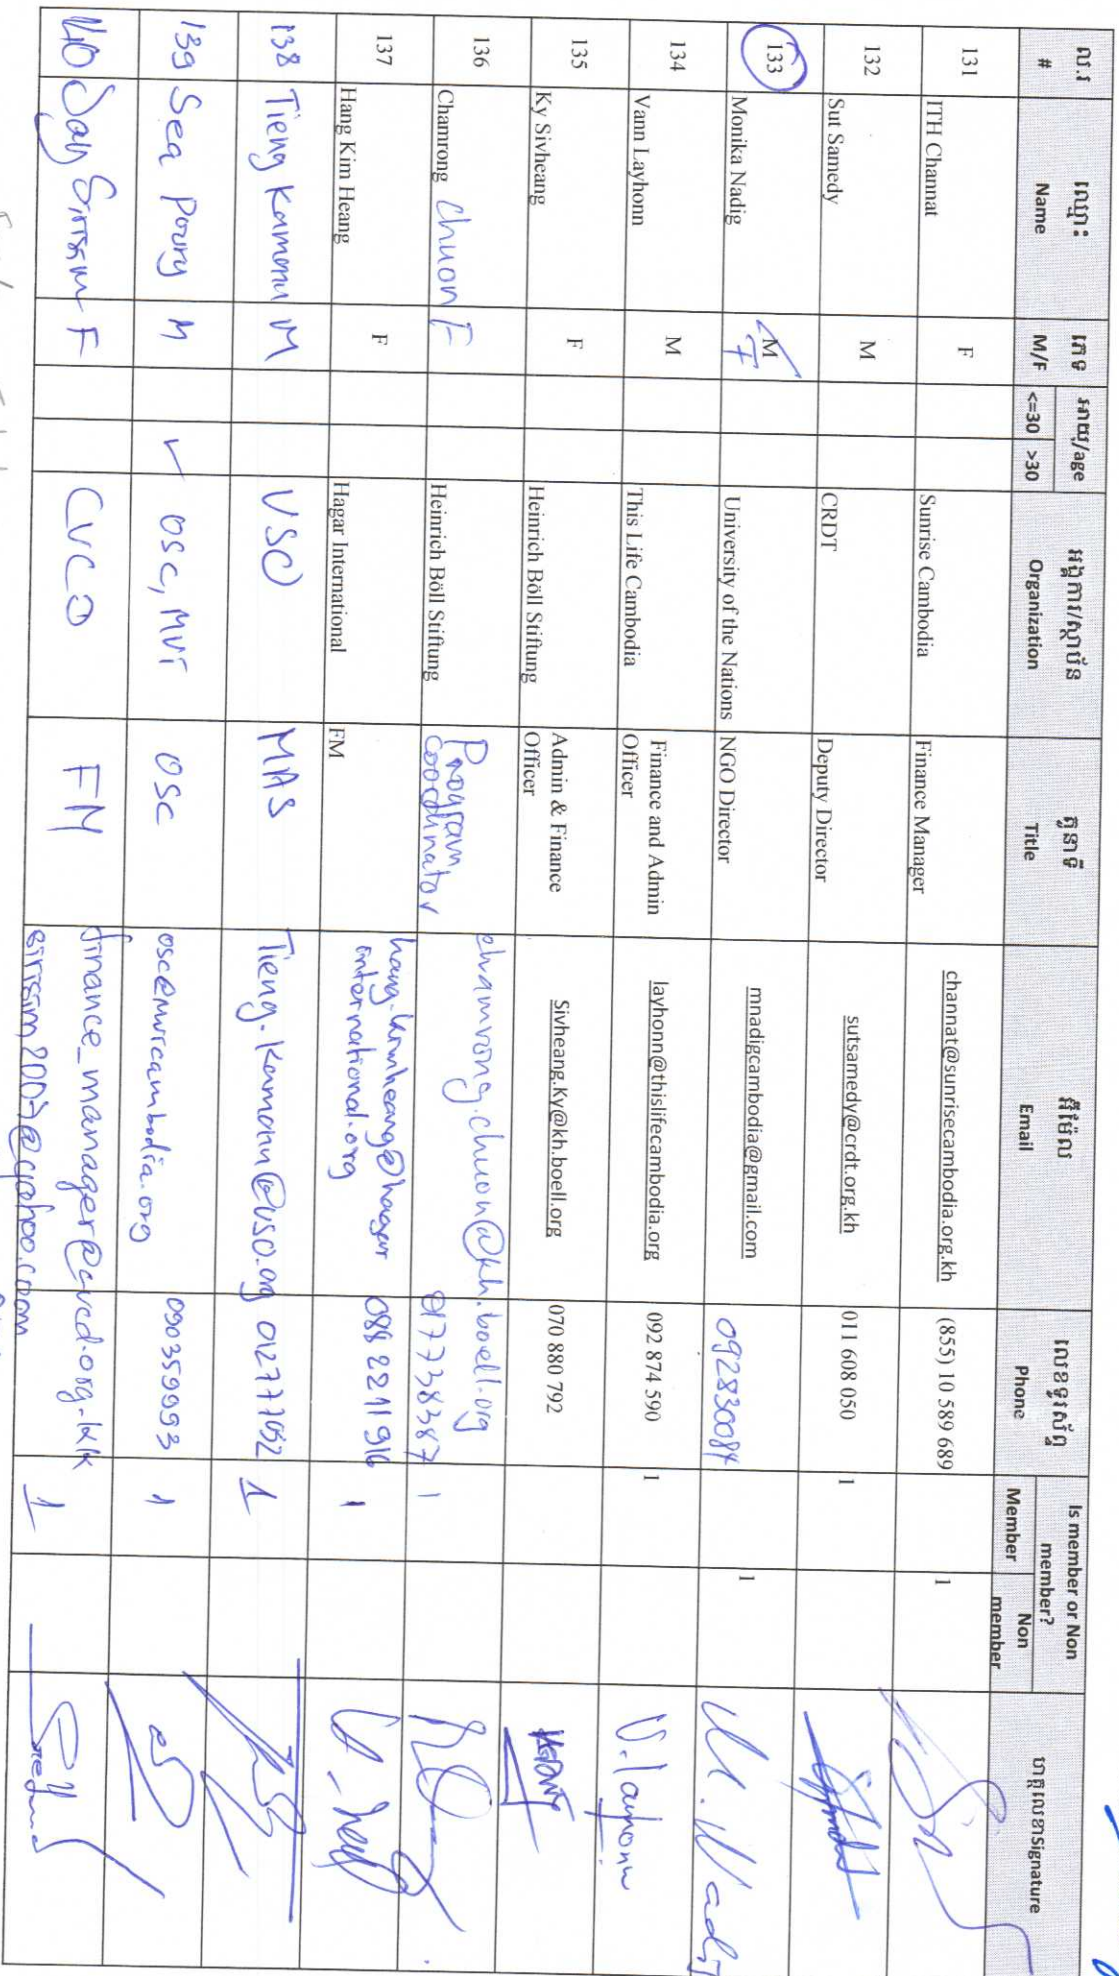 ល.រ ឈ្មោះ ភេទ អាយុ/age អង្គការ/ស្ថាប័ន តួនាទី អ៊ីម៉ែល លេខទូរស័ព្ទ Is member or Non member? ហត្ថលេខាSignature
# Name M/F <=30 >30 Organization Title Email Phone Member Non member
131 ITH Channat F Sunrise Cambodia Finance Manager channat@sunrisecambodia.org.kh (855) 10 589 689 1
132 Sut Samedy M CRDT Deputy Director sutsamedy@crdt.org.kh 011 608 050 1
133 Monika Nadig M F University of the Nations NGO Director mnadigcambodia@gmail.com 092830084 1 M. Nadig
134 Vann Layhonn M This Life Cambodia Finance and Admin Officer layhonn@thislifecambodia.org 092 874 590 1 V. layhonn
135 Ky Sivheang F Heinrich Böll Stiftung Admin & Finance Officer Sivheang.Ky@kh.boell.org 070 880 792
136 Chamrong Chuon F Heinrich Böll Stiftung Program Coordinator chamrong.chuon@kh.boell.org 017738387 1
137 Hang Kim Heang F Hagar International FM hang.kimheang@hagar international.org 088 2211916 1
138 Tieng Kamonn M VSO MAS Tieng.Kamonn@vso.org 012777052 1
139 Sea Poury M ✓ OSC, MVI OSC 090359993 1
140 Say Sirisim F CVCD FM finance_manager@cvcd.org.kh sirisim2007@yahoo.com 1